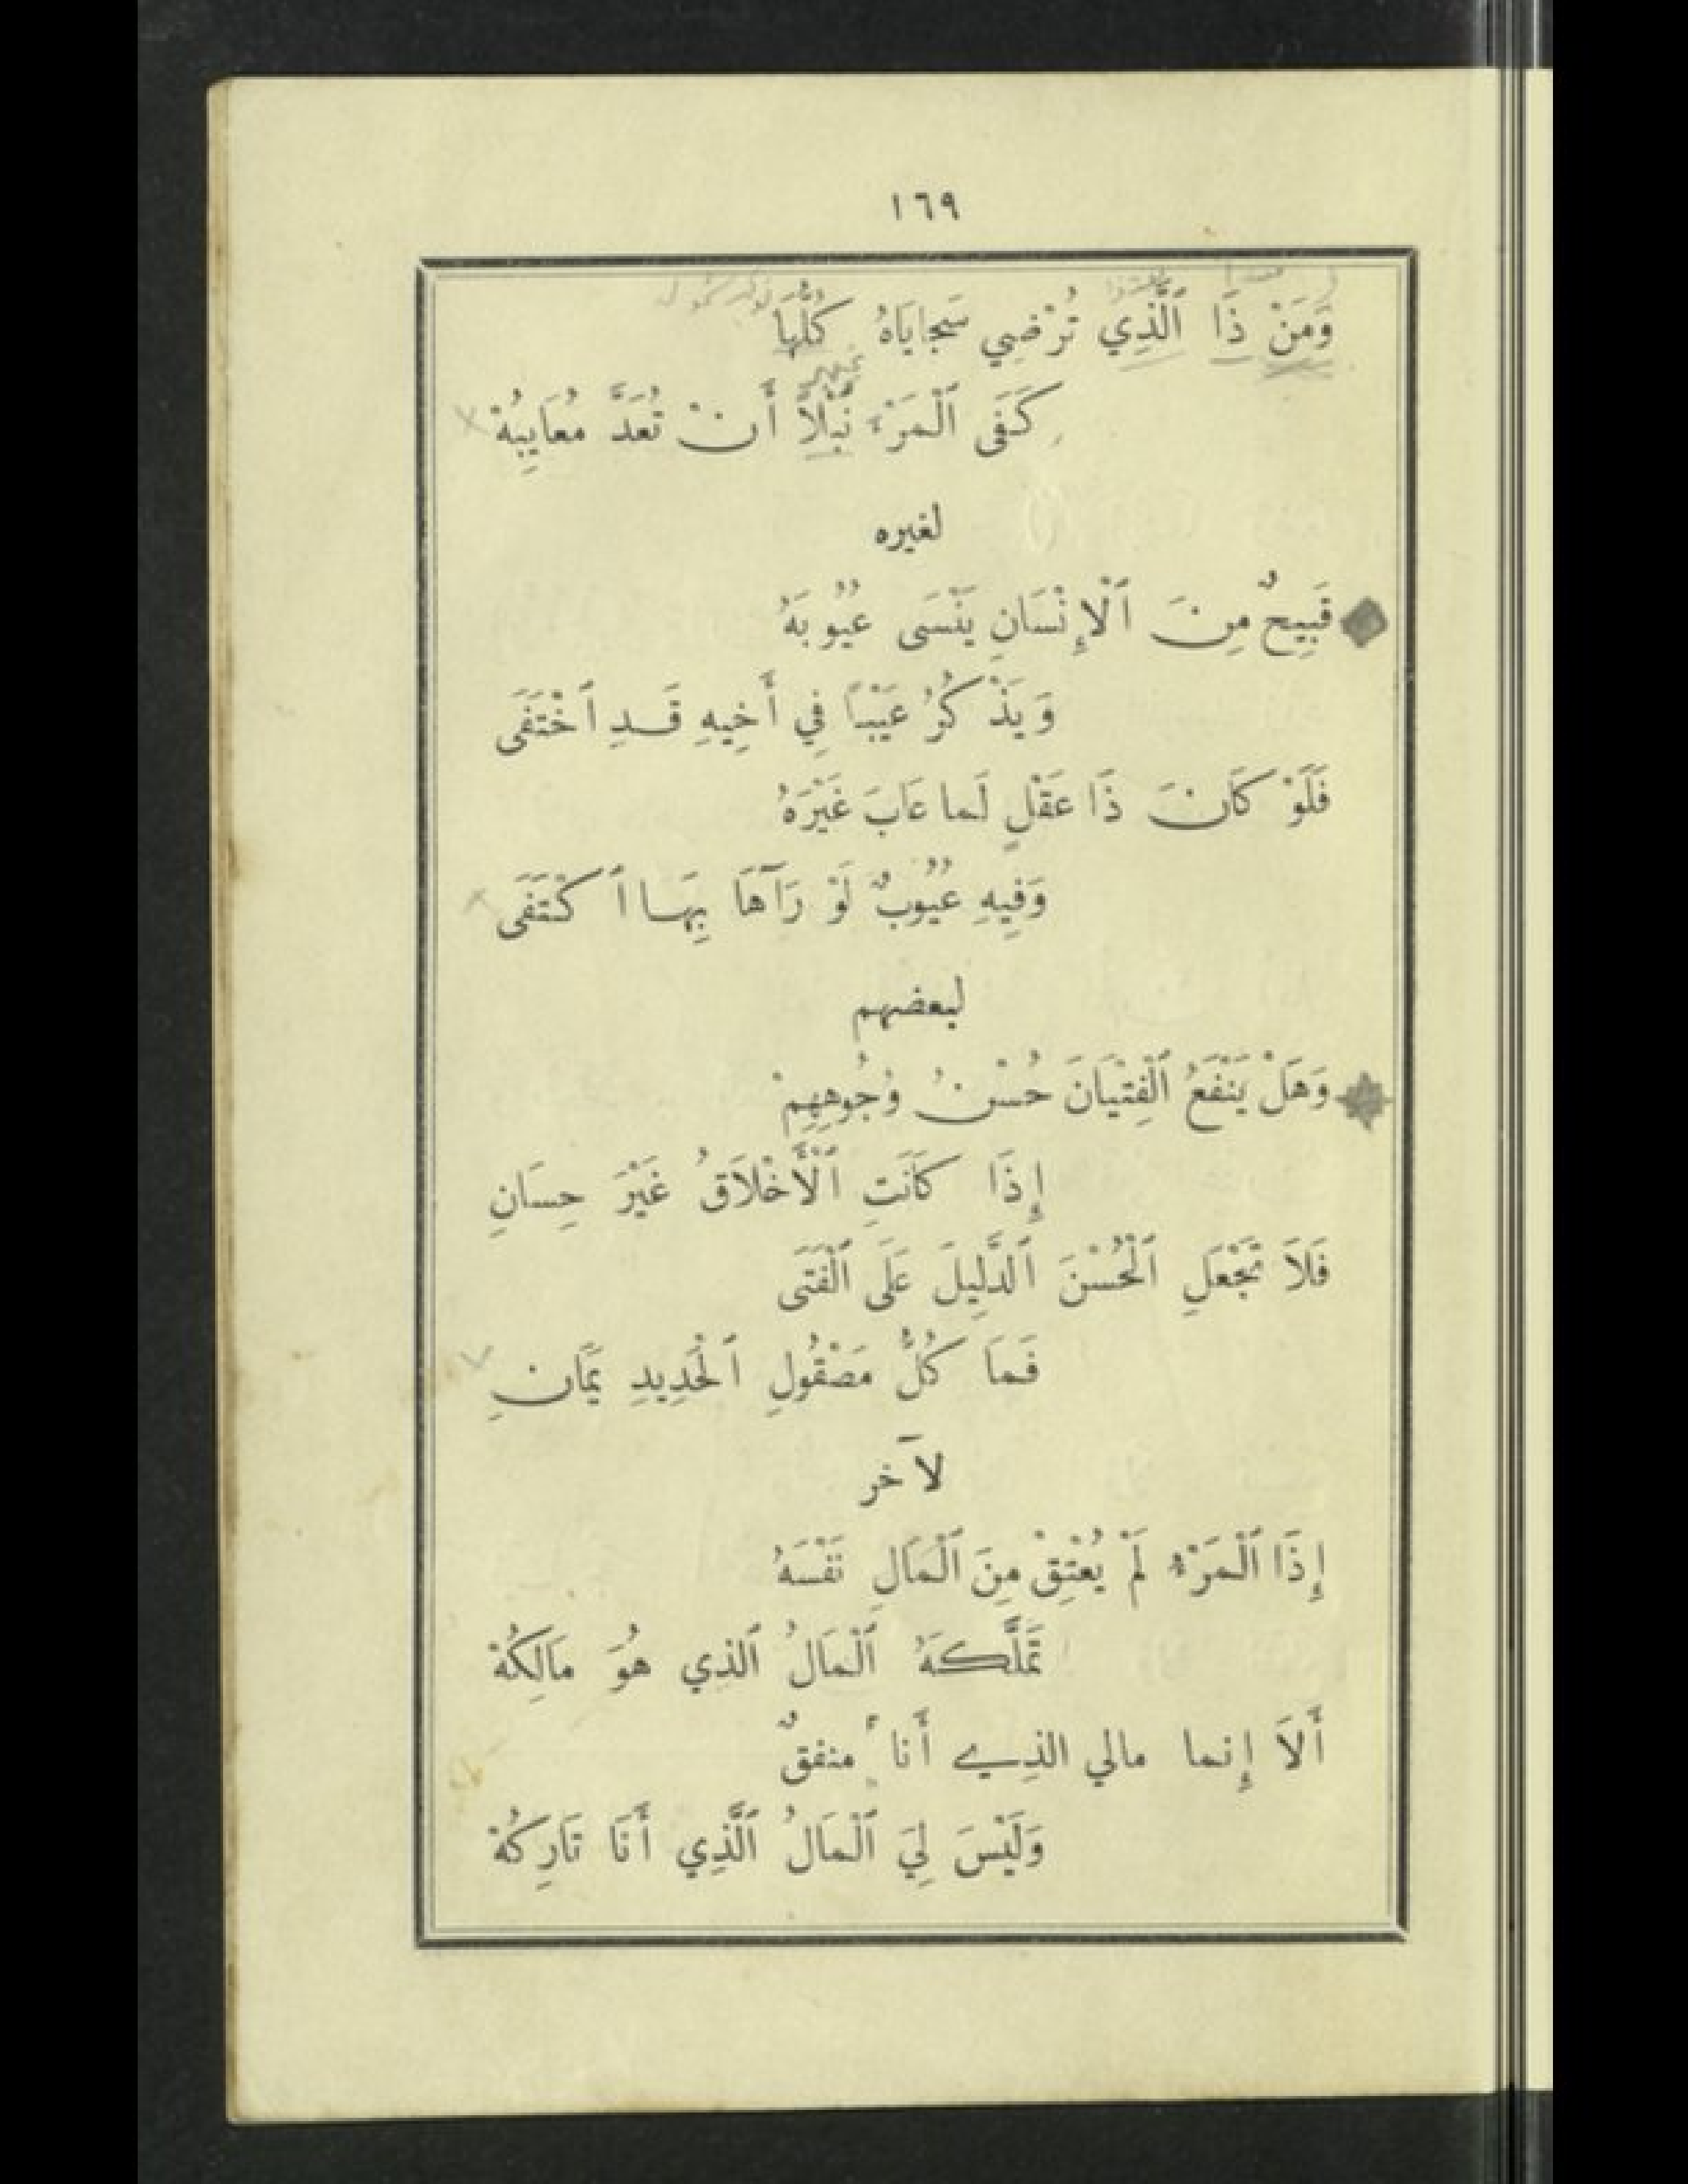 ١٦٩
وَمَنْ ذَا ٱلَّذِي تُرْضِي سَجايَاهُ كُلُّهَا
كَفَى ٱلْمَرْءَ نُبْلاً أَنْ تُعَدَّ مُعَايِبُهْ
لغيره
قَبِيحٌ مِنَ ٱلْإِنْسَانِ يَنْسَى عُيُوبَهُ
وَيَذْكُرُ عَيْبًا فِي أَخِيهِ قَدِ ٱخْتَفَى
فَلَوْ كَانَ ذَا عَقْلٍ لَما عَابَ غَيْرَهُ
وَفِيهِ عُيُوبٌ لَوْ رَآهَا بِهَا ٱكْتَفَى
لبعضهم
وَهَلْ يَنْفَعُ ٱلْفِتْيَانَ حُسْنُ وُجُوهِهِمْ
إِذَا كَانَتِ ٱلْأَخْلاَقُ غَيْرَ حِسَانِ
فَلاَ تَجْعَلِ ٱلْحُسْنَ ٱلدَّلِيلَ عَلَى ٱلْفَتَى
فَمَا كُلُّ مَصْقُولِ ٱلْحَدِيدِ يَمَانِ
لآخر
إِذَا ٱلْمَرْءُ لَمْ يُعْتِقْ مِنَ ٱلْمَالِ نَفْسَهُ
تَمَلَّكَهُ ٱلْمَالُ ٱلذِي هُوَ مَالِكُهْ
أَلاَ إِنما مالي الذِي أَنا منفقٌ
وَلَيْسَ لِيَ ٱلْمَالُ ٱلَّذِي أَنَا تَارِكُهْ